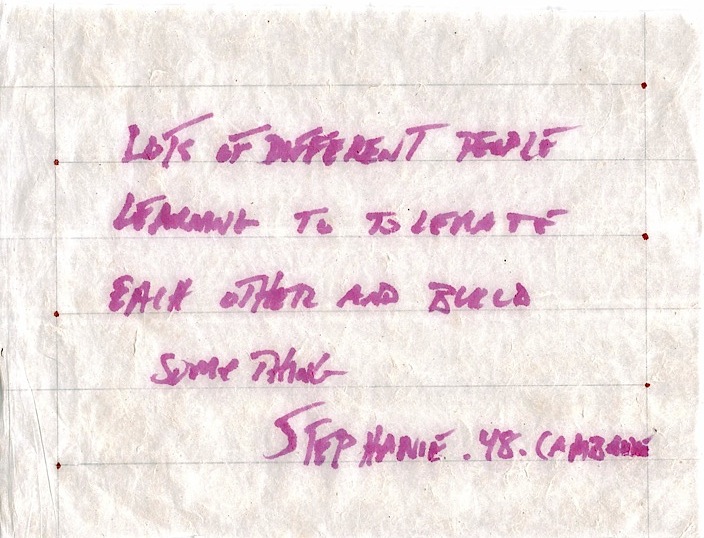 LOTS OF DIFFERENT PEOPLE
LEARNING TO TOLERATE
EACH OTHER AND BUILD
SOMETHING
STEPHANIE. 48.